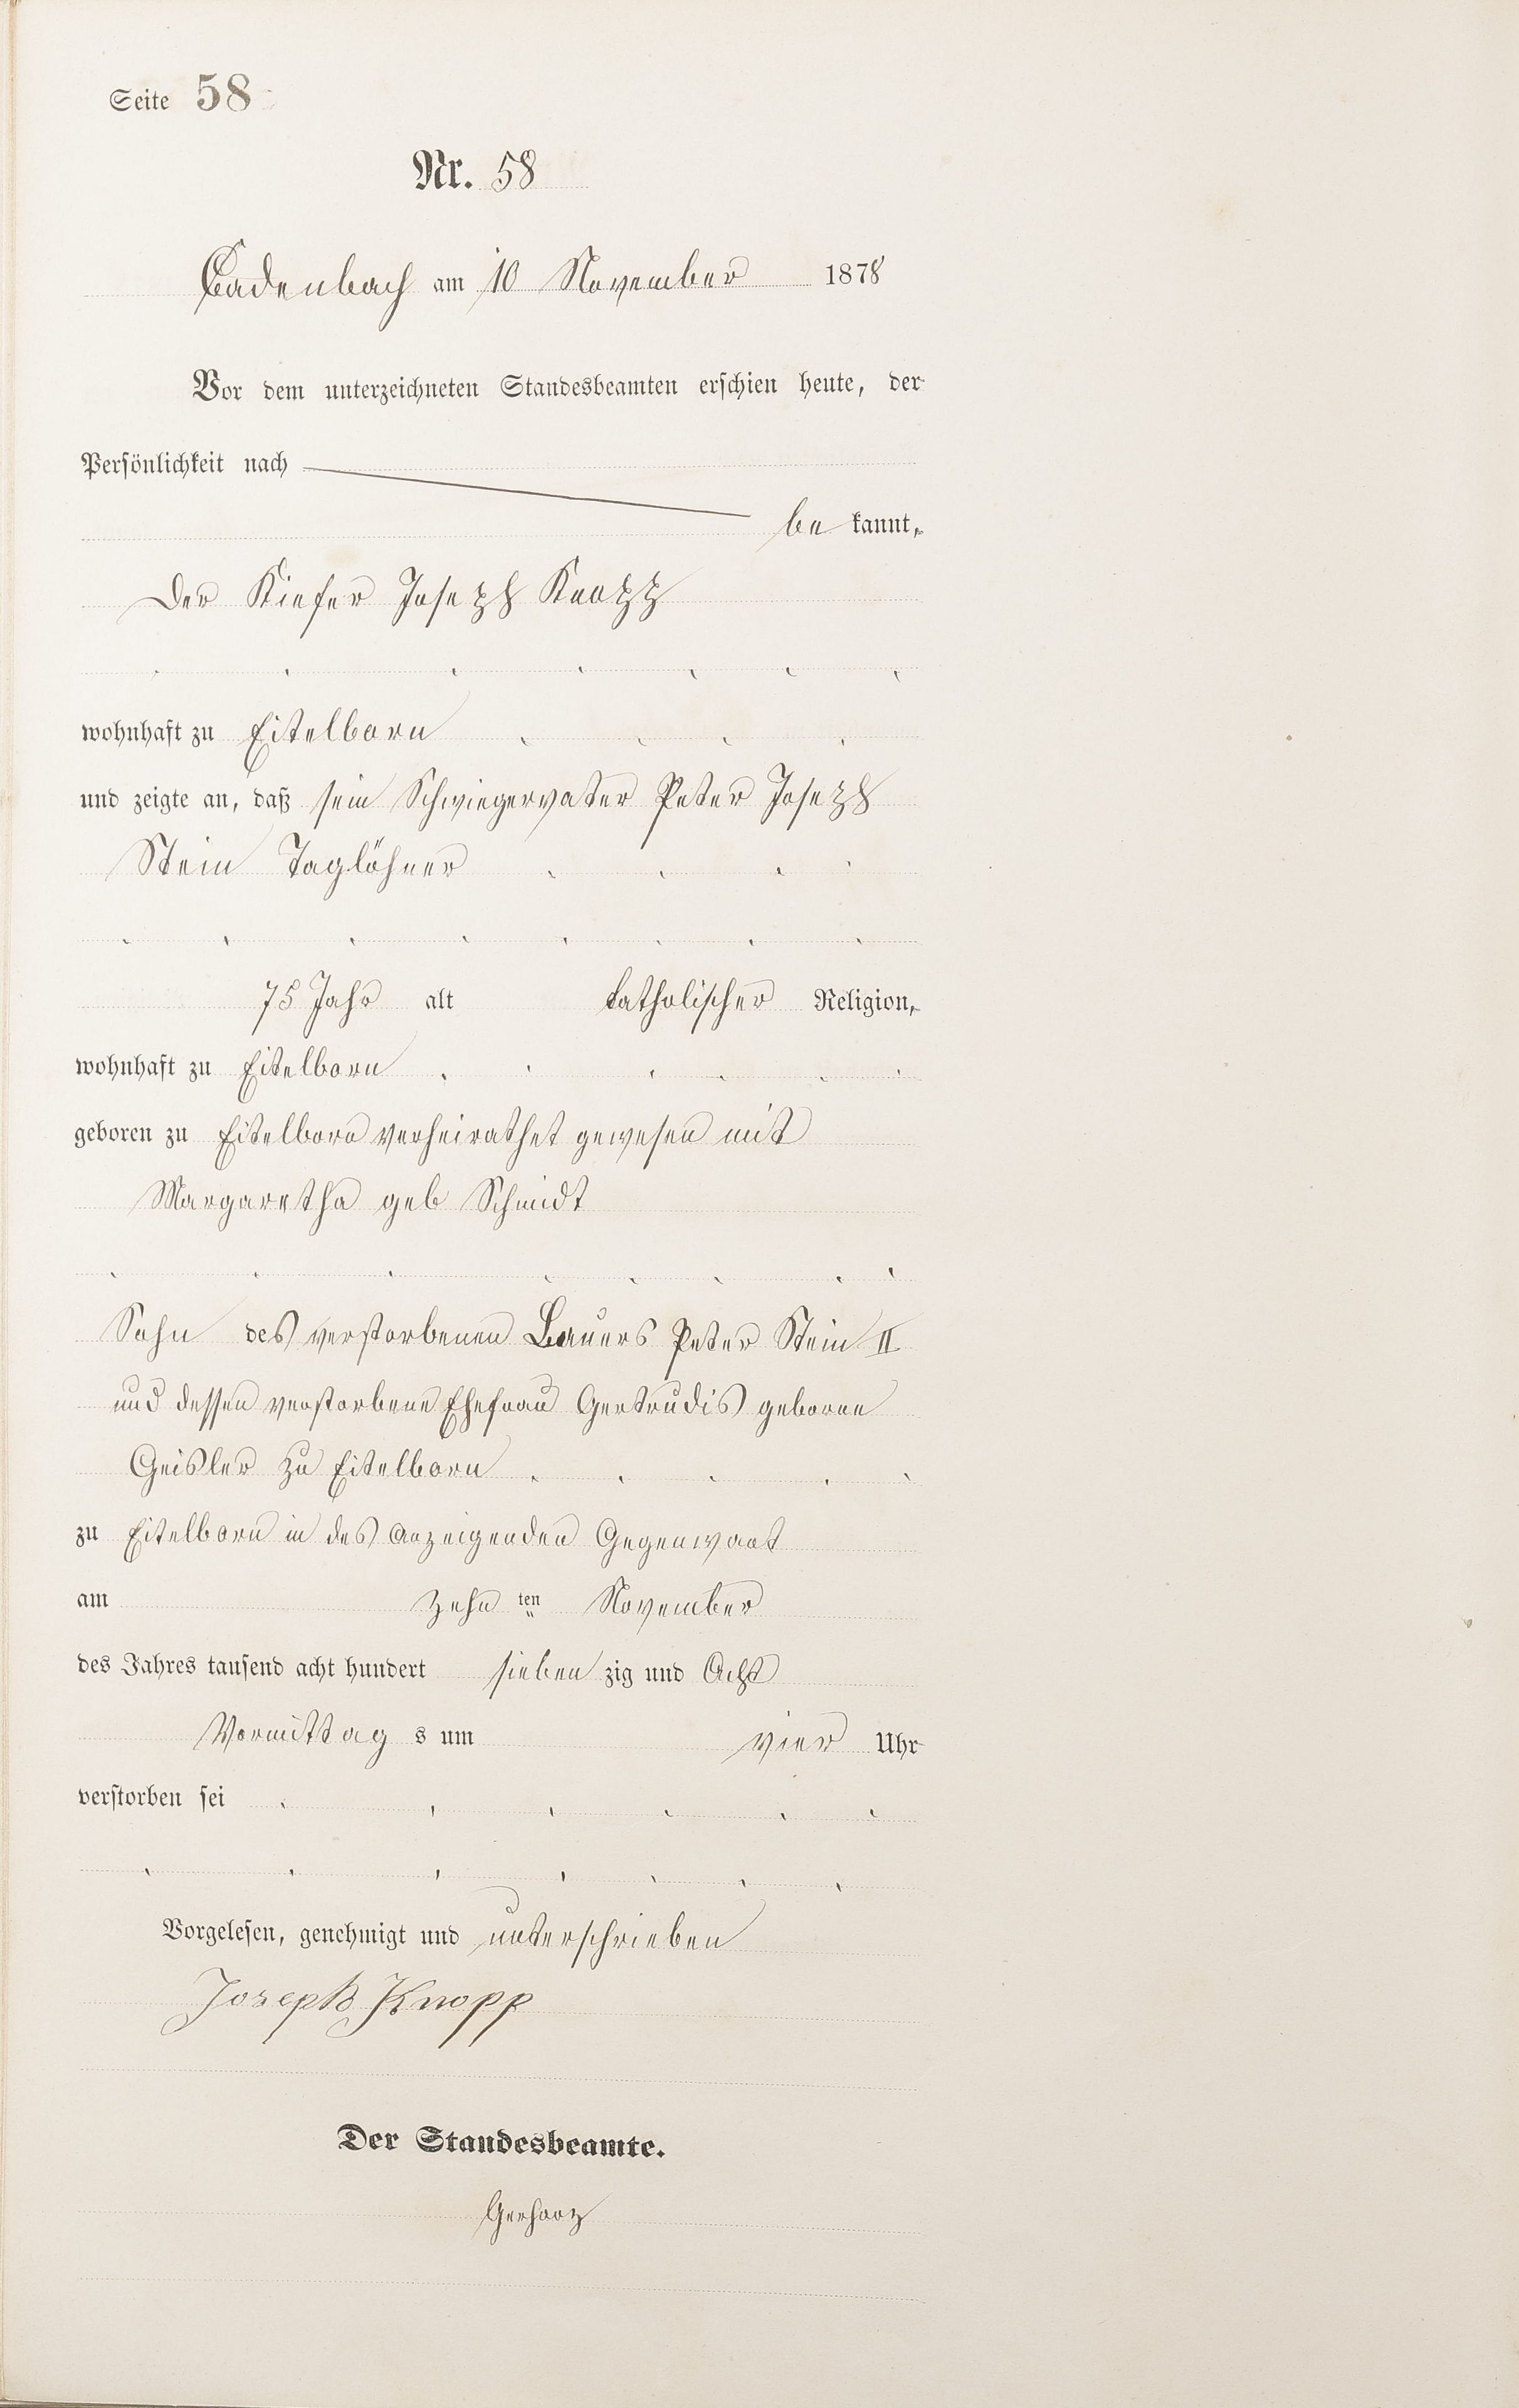 Seite 58
Nr. 58
Cadenbach am 10 November 1878
Vor dem unterzeichneten Standesbeamten erschien heute, der
Persönlichkeit nach
be kannt,
Der Kiefer Joseph Knopp
wohnhaft zu Eitelborn
und zeigte an, daß sein Schwiegervater Peter Joseph
Stein Taglöhner
75 Jahr alt katholischer Religion,
wohnhaft zu Eitelborn
geboren zu Eitelborn verheirathet gewesen mit
Margaretha geb Schmidt
Sohn des verstorbenen Bauers Peter Stein II
und dessen verstorbene Ehefrau Gertrudis geborne
Geisler zu Eitelborn
zu Eitelborn in des Anzeigenden Gegenwart
am zehn ten November
des Jahres tausend acht hundert sieben zig und Acht
Vormittag s um vier Uhr
verstorben sei
Vorgelesen, genehmigt und unterschrieben
Joseph Knopp
Der Standesbeamte.
Gerharz